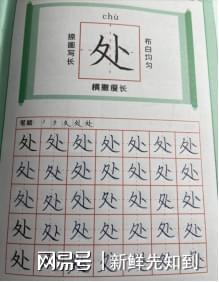 chù
撩画写长
处
布白均匀
横撇瘦长
笔顺: ノ ク 夂 处 处
处 处 处 处 处 处 处
处 处 处 处 处 处 处
处 处 处 处 处 处 处
处 处 处 处 处 处 处
处 处 处 处 处 处 处
网易号 | 新鲜先知到